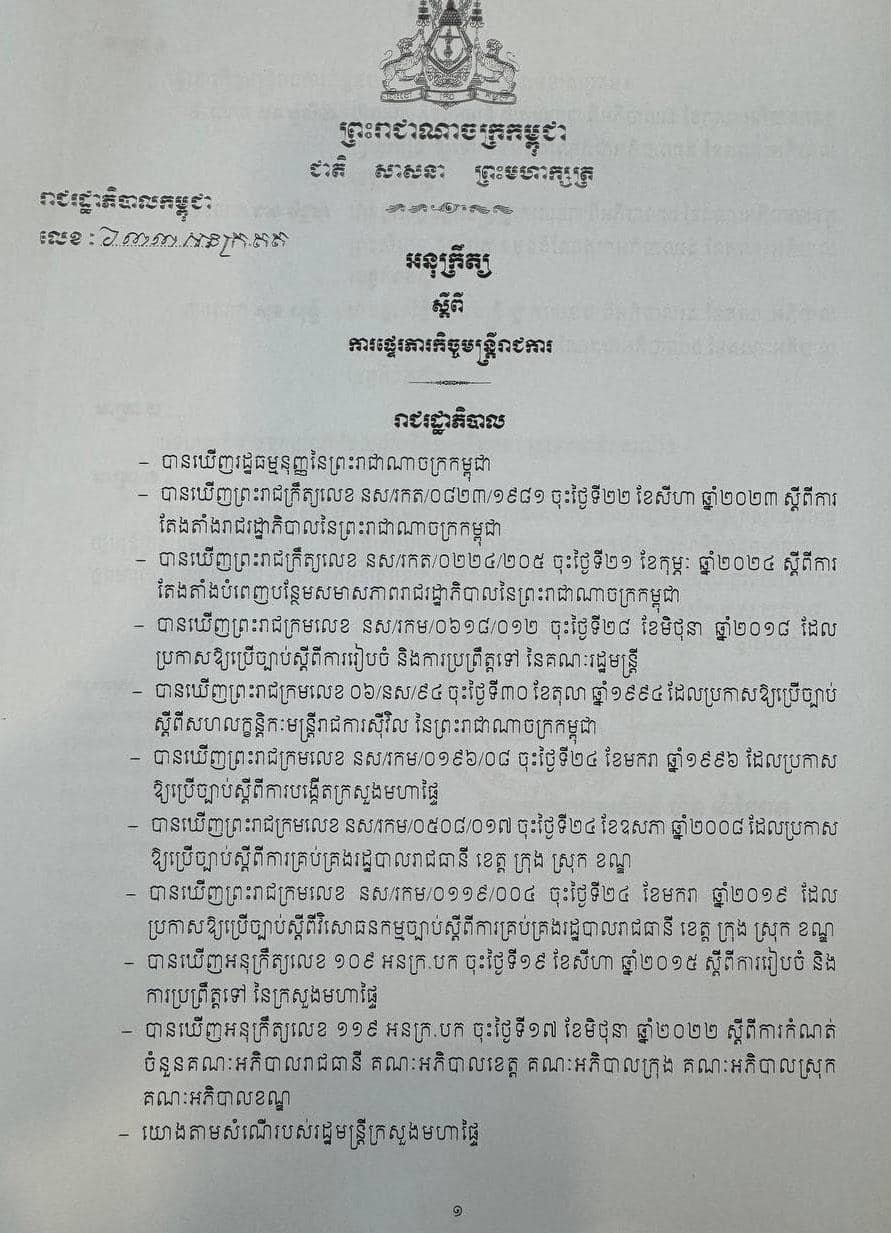 ព្រះរាជាណាចក្រកម្ពុជា
ជាតិ សាសនា ព្រះមហាក្សត្រ
រាជរដ្ឋាភិបាលកម្ពុជា
លេខ : អនក្រ.តត
អនុក្រឹត្យ
ស្តីពី
ការផ្ទេរភារកិច្ចមន្ត្រីរាជការ
រាជរដ្ឋាភិបាល
– បានឃើញរដ្ឋធម្មនុញ្ញនៃព្រះរាជាណាចក្រកម្ពុជា
– បានឃើញព្រះរាជក្រឹត្យលេខ នស/រកត/០៨២៣/១៩៨១ ចុះថ្ងៃទី២២ ខែសីហា ឆ្នាំ២០២៣ ស្តីពីការ
តែងតាំងរាជរដ្ឋាភិបាលនៃព្រះរាជាណាចក្រកម្ពុជា
– បានឃើញព្រះរាជក្រឹត្យលេខ នស/រកត/០២២៤/២០៥ ចុះថ្ងៃទី២១ ខែកុម្ភៈ ឆ្នាំ២០២៤ ស្តីពីការ
តែងតាំងបំពេញបន្ថែមសមាសភាពរាជរដ្ឋាភិបាលនៃព្រះរាជាណាចក្រកម្ពុជា
– បានឃើញព្រះរាជក្រមលេខ នស/រកម/០៦១៨/០១២ ចុះថ្ងៃទី២៨ ខែមិថុនា ឆ្នាំ២០១៨ ដែល
ប្រកាសឱ្យប្រើច្បាប់ស្តីពីការរៀបចំ និងការប្រព្រឹត្តទៅ នៃគណៈរដ្ឋមន្ត្រី
– បានឃើញព្រះរាជក្រមលេខ ០៦/នស/៩៤ ចុះថ្ងៃទី៣០ ខែតុលា ឆ្នាំ១៩៩៤ ដែលប្រកាសឱ្យប្រើច្បាប់
ស្តីពីសហលក្ខន្តិកៈមន្ត្រីរាជការស៊ីវិល នៃព្រះរាជាណាចក្រកម្ពុជា
– បានឃើញព្រះរាជក្រមលេខ នស/រកម/០១៩៦/០៨ ចុះថ្ងៃទី២៤ ខែមករា ឆ្នាំ១៩៩៦ ដែលប្រកាស
ឱ្យប្រើច្បាប់ស្តីពីការបង្កើតក្រសួងមហាផ្ទៃ
– បានឃើញព្រះរាជក្រមលេខ នស/រកម/០៥០៨/០១៧ ចុះថ្ងៃទី២៤ ខែឧសភា ឆ្នាំ២០០៨ ដែលប្រកាស
ឱ្យប្រើច្បាប់ស្តីពីការគ្រប់គ្រងរដ្ឋបាលរាជធានី ខេត្ត ក្រុង ស្រុក ខណ្ឌ
– បានឃើញព្រះរាជក្រមលេខ នស/រកម/០១១៩/០០៤ ចុះថ្ងៃទី២៤ ខែមករា ឆ្នាំ២០១៩ ដែល
ប្រកាសឱ្យប្រើច្បាប់ស្តីពីវិសោធនកម្មច្បាប់ស្តីពីការគ្រប់គ្រងរដ្ឋបាលរាជធានី ខេត្ត ក្រុង ស្រុក ខណ្ឌ
– បានឃើញអនុក្រឹត្យលេខ ១០៩ អនក្រ.បក ចុះថ្ងៃទី១៩ ខែសីហា ឆ្នាំ២០១៥ ស្តីពីការរៀបចំ និង
ការប្រព្រឹត្តទៅ នៃក្រសួងមហាផ្ទៃ
– បានឃើញអនុក្រឹត្យលេខ ១១៩ អនក្រ.បក ចុះថ្ងៃទី១៧ ខែមិថុនា ឆ្នាំ២០២២ ស្តីពីការកំណត់
ចំនួនគណៈអភិបាលរាជធានី គណៈអភិបាលខេត្ត គណៈអភិបាលក្រុង គណៈអភិបាលស្រុក
គណៈអភិបាលខណ្ឌ
– យោងតាមសំណើរបស់រដ្ឋមន្ត្រីក្រសួងមហាផ្ទៃ
១